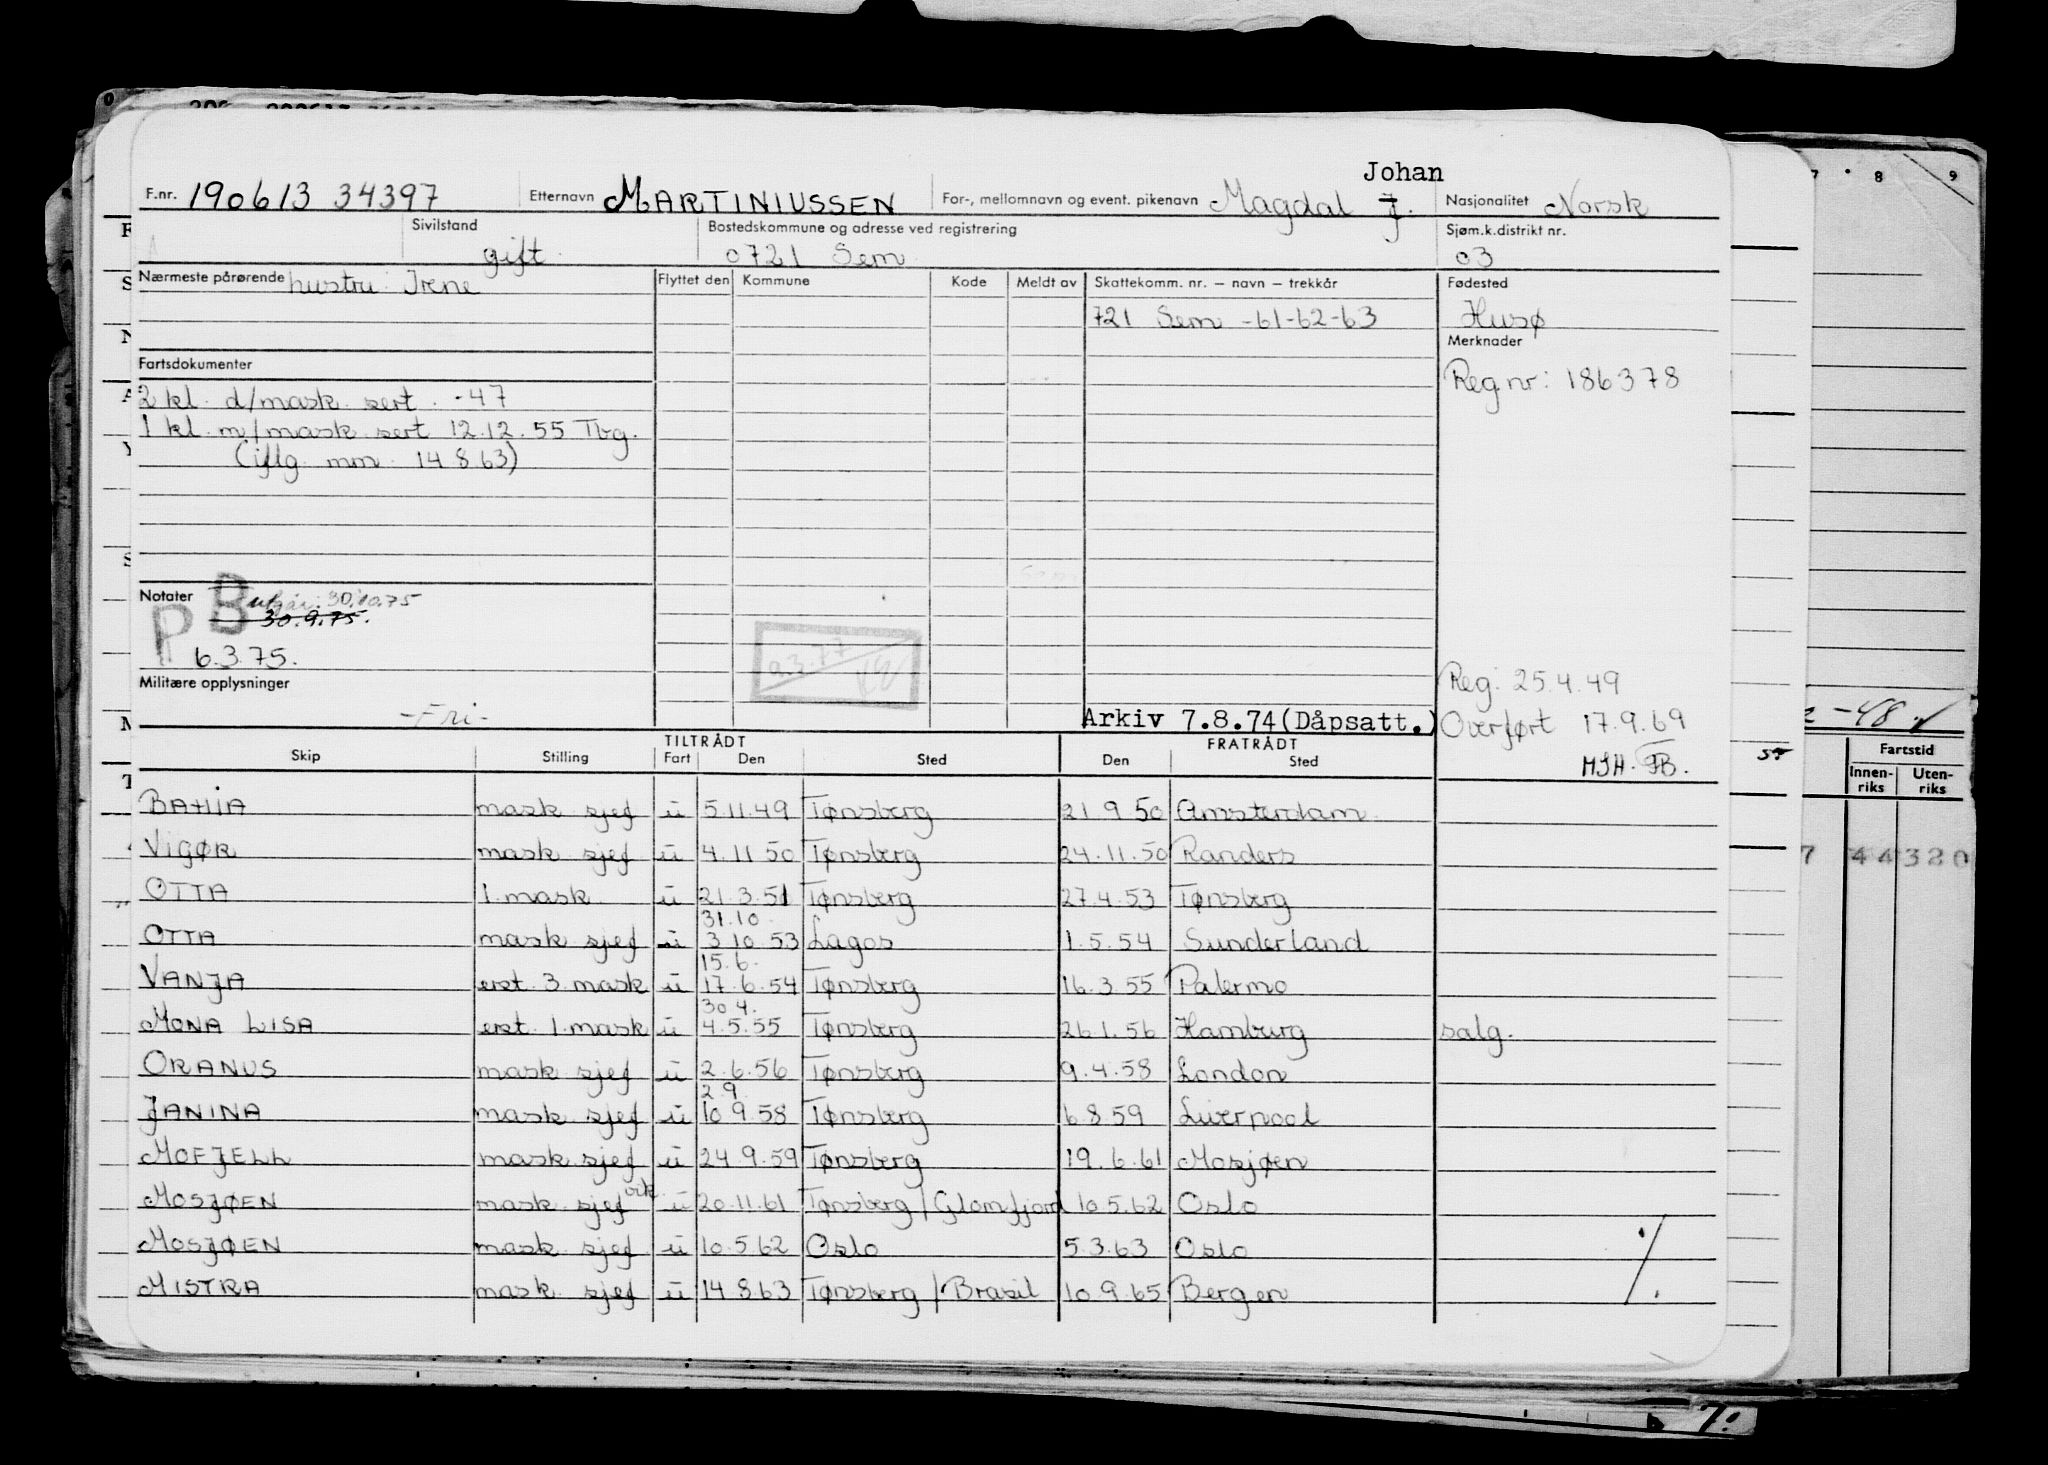 Johan
F.nr. 190613 34397 Etternavn MARTINIUSSEN For-, mellomnavn og event. pikenavn Magdal J. Nasjonalitet Norsk
Sivilstand Bostedskommune og adresse ved registrering Sjøm.k.distrikt nr.
gift 0721 Sem 03
Nærmeste pårørende hustru: Irene Flyttet den Kommune Kode Meldt av Skattekomm. nr. — navn — trekkår Fødested
721 Sem -61-62-63 Husø
Merknader
Fartsdokumenter
Reg nr: 186378
2 kl. d/mask. sert. -47
1 kl. m/mask sert 12.12.55 Tbg.
(iflg. mm. 14.8.63)
Notater B utgår: 30.10.75
P 30.9.75.
6.3.75.
Militære opplysninger Reg. 25.4.49
-Fri- Arkiv 7.8.74(Dåpsatt.) Overført 17.9.69
TILTRÅDT FRATRÅDT
Skip Stilling Fart Den Sted Den Sted
BAHIA mask sjef u 5.11.49 Tønsberg 21.9.50 Amsterdam
VIGØR mask sjef u 4.11.50 Tønsberg 24.11.50 Randers
OTTA 1. mask. u 21.3.51 Tønsberg 27.4.53 Tønsberg
31.10
OTTA mask sjef u 3.10.53 Lagos 1.5.54 Sunderland
15.6.
VANJA erst. 3 mask u 17.6.54 Tønsberg 16.3.55 Palermo
30.4.
MONA LISA erst. 1. mask u 4.5.55 Tønsberg 26.1.56 Hamburg salg.
ORANUS mask sjef u 2.6.56 Tønsberg 9.4.58 London
2.9.
JANINA mask sjef u 10.9.58 Tønsberg 6.8.59 Liverpool
MOFJELL mask sjef u 24.9.59 Tønsberg 19.6.61 Mosjøen
MOSJØEN mask sjef vik. u 20.11.61 Tønsberg/Glomfjord 10.5.62 Oslo
MOSJØEN mask sjef u 10.5.62 Oslo 5.3.63 Oslo
MISTRA mask sjef u 14.8.63 Tønsberg/Brasil 10.9.65 Bergen
7 8 9
-48
Fartstid
Innen- Uten-
riks riks
7 44320